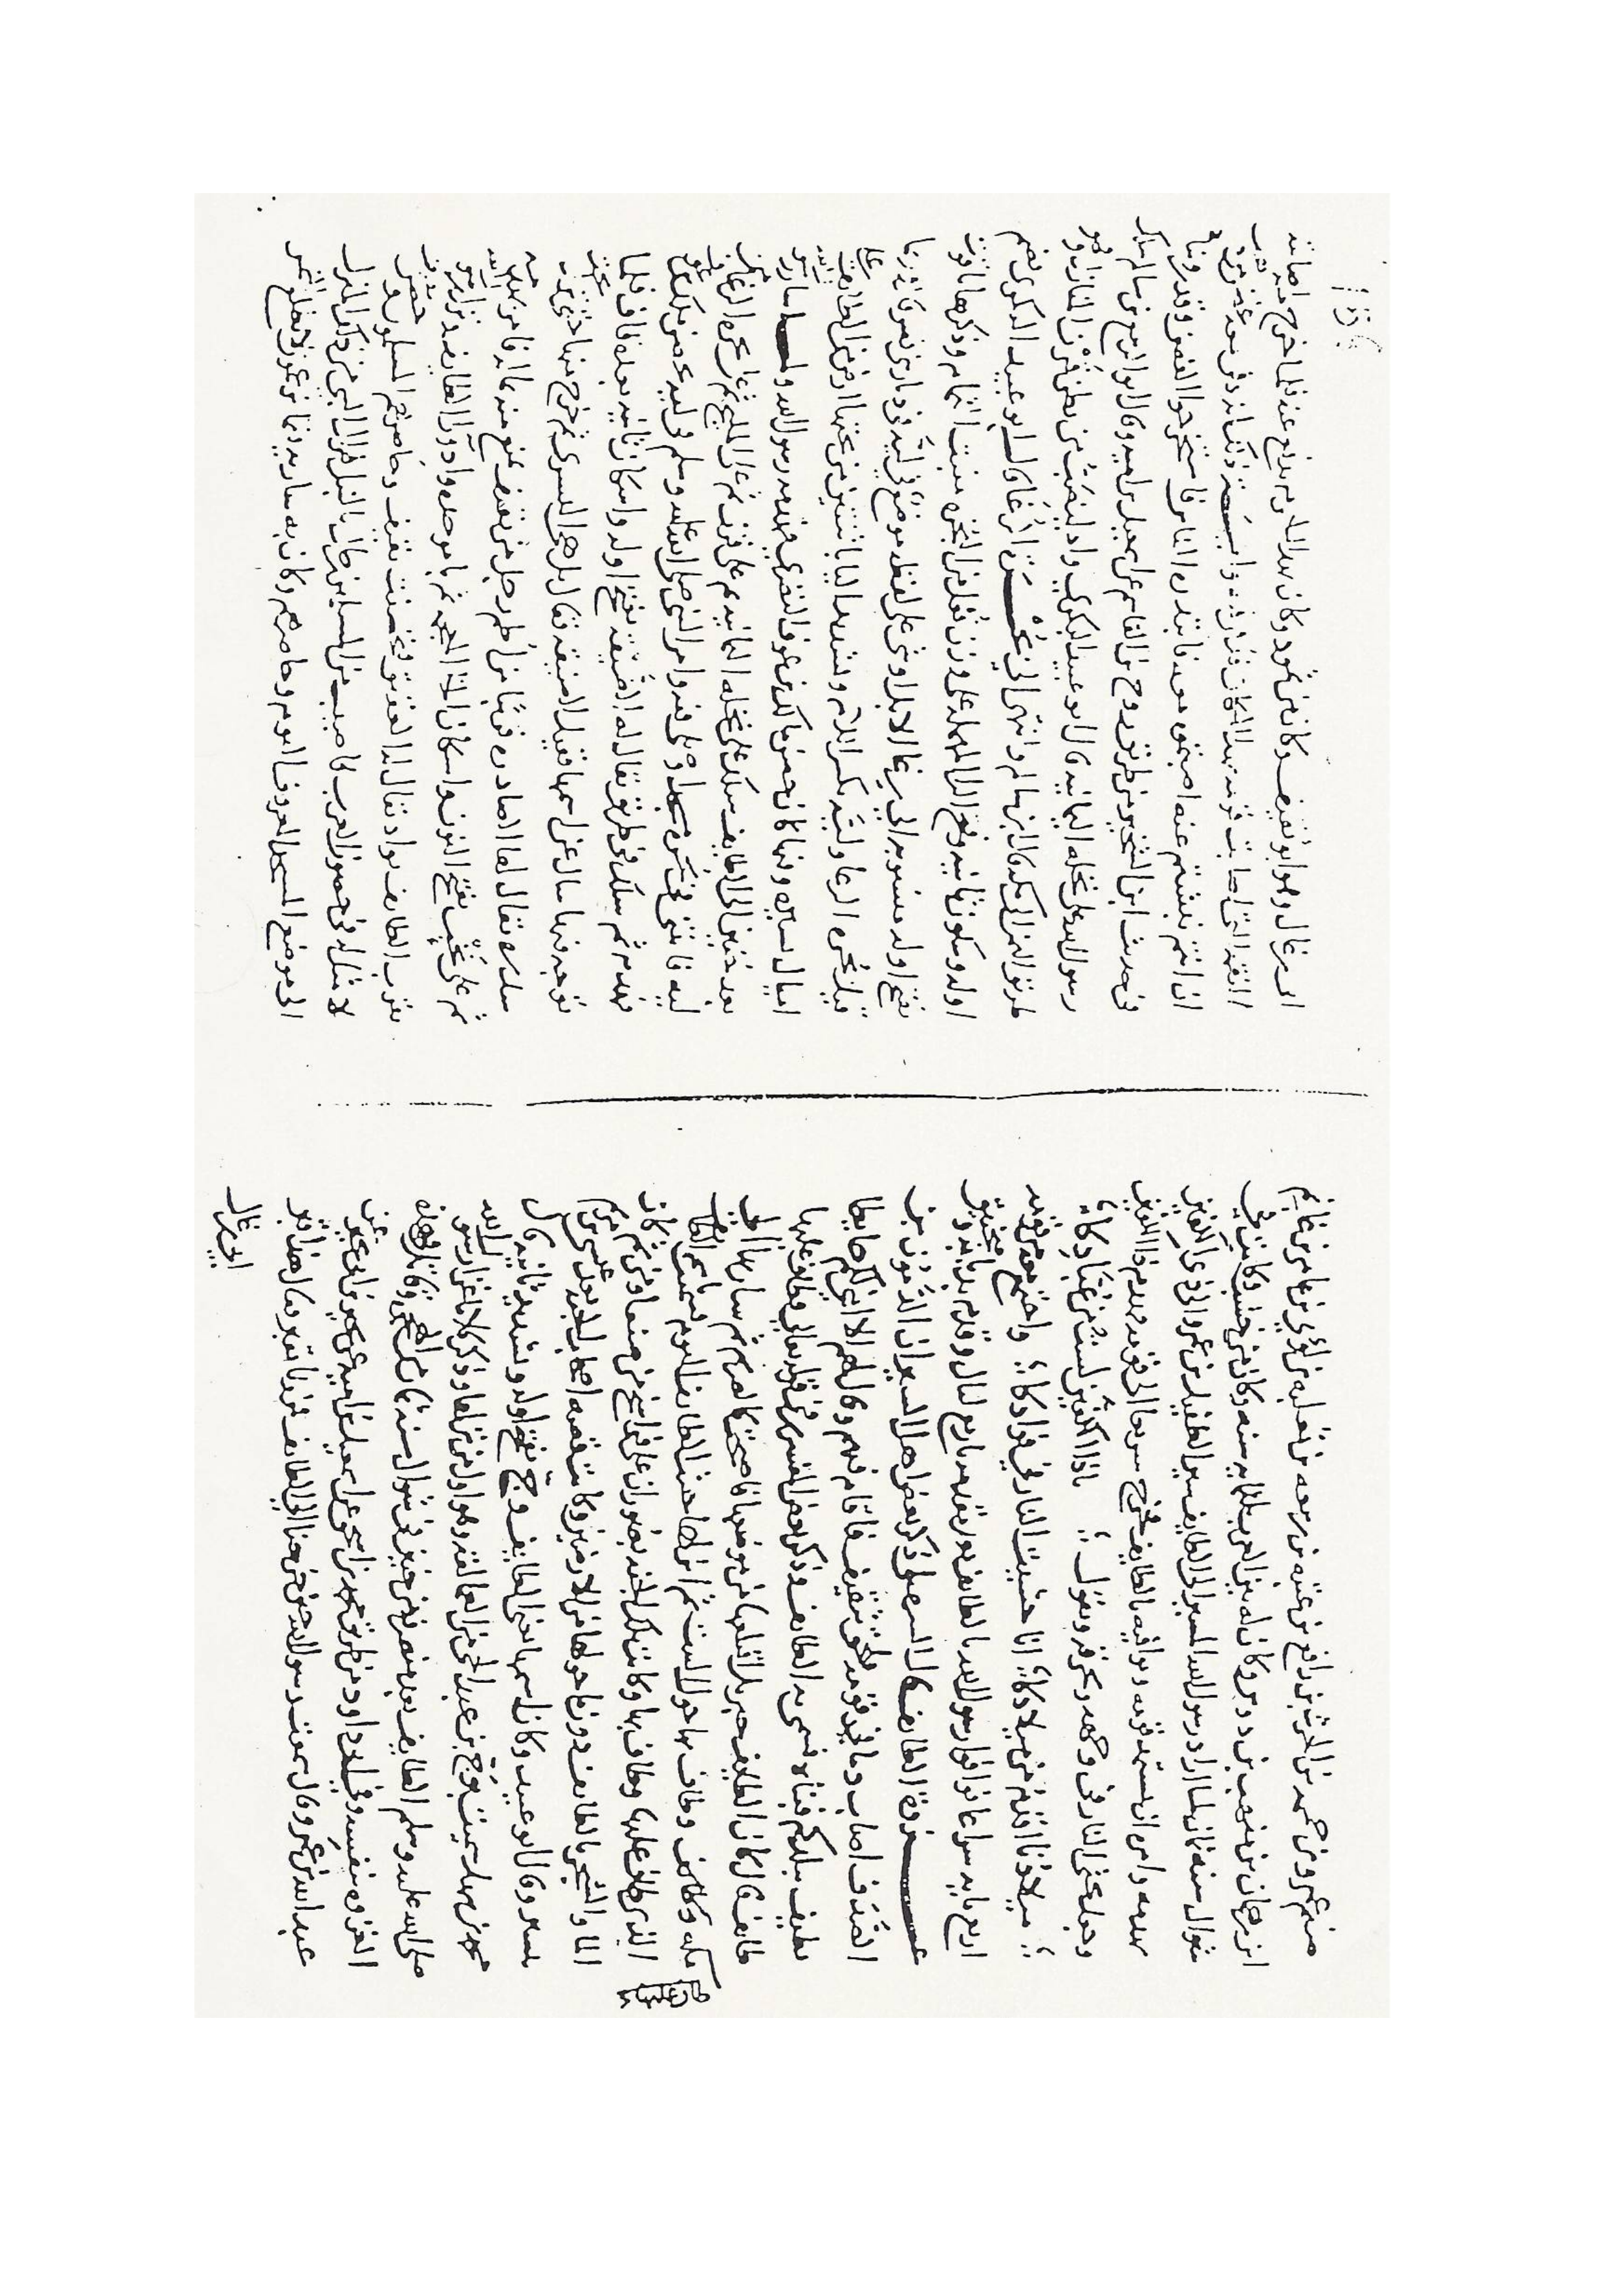 منهم عمرو بن حممه بن الحرث بن رافع بن ربيعه بن ثعلبه بن لؤي بن عامر بن غانم
ابن دهمان بن منهب بن دوس وكان له بين العرب ثلثمايه سنه وكان من خشب
شوال سنه ثمان لما اراد رسول الله المسير الى الطايف سير الطفيل بن عمرو الى ذي الكفين
يهدمه وامره ان يستمد قومه ويوافيه بالطايف فخرج سريعا الى قومه فهدم ذا الكفين
وجعل يحش النار في وجهه ويحرقه ويقول ؛ ياذا الكفين لست من عبادكا ؛
؛ ميلادنا اقدم من ميلادكا ؛ انا حششت النار في فوادكا ؛ واجتمع معه من قومه
اربع مايه سراعا فوافوا رسول الله بالطايف بعد مقدمه باربع ليال وقدم بدبابه ومنجنيق
غزوة الطايف قال السهيلي ذكر بعض اهل النسب ان الدمون بن
الصدف اصاب دما في قومه فلحق بثقيف فاقام فيهم وقال لهم الا ابني لكم حايطا
يطيف ببلدكم فبناه فسمي به الطايف وذكر بعض المفسرين في قوله تعالى فطاف عليها
طايف قال كان الطايف جبريل اقتلعها من موضعها فاصبحت كالصريم ثم سار بها الى
مكه وطاف بها حول البيت ثم انزلها حيث الطايف اليوم فسميت باسم الطايف
الذي طاف عليها وطاف بها وكانت تلك الجنه بضوران على فراسخ من صنعا ومن ثم كان
الما والشجر بالطايف دون ما حولها من الارضين وكانت قصه اصحاب الجنه بعد عيسى بن مريم
بيسير وقال ابو عبيد وكان اسمها يعني الطايف وج بفتح اوله وتشديد ثانيه قال
محمد بن سهل سميت بوج بن عبد الحي من العمالقه وهو اول من نزلها وذكر كلاما غزا رسول الله
صلى الله عليه وسلم الطايف بعد منصرفه من حنين في شوال سنه ثمان
الغزوه بنفسه وفي ابي داود من طريق محمد بن اسحق عن اسمعيل بن اميه عن بجير بن ابي بجير عن
عبد الله بن عمرو قال سمعت رسول الله حين خرجنا الى الطايف فمررنا بقبر فقال هذا قبر
ابي رغال
ابي رغال وهو ابو ثقيف وكان من ثمود وكان بهذا الحرم يدفع عنه فلما خرج منه اصابته
النقمه التي اصابت قومه بهذا المكان فدفن فيه وايه ذلك انه دفن معه غصن من ذهب
ان انتم نبشتم عنه اصبتموه معه فابتدره الناس فاستخرجوا الغصن وقد روياه
في حديث ابن الشخير من طريق روح بن القاسم عن اسمعيل بن اميه وقال ابو الربيع بن سالم سلك
رسول الله على نخله اليمانيه قال ابو عبيد البكري واد ليصب من بطن قرن المنازل وهو
طريق اليمن الى مكه قال ابن هشام وانتهى الى بحرة الرغا قال ابو عبيد البكري بضم
اوله وسكون ثانيه وفتح الرا المهمله على وزن فعله من البحر منبت الثمام وذكرها
بفتح اوله منسوبه الى رغا الابل او شي على لفظه موضع في ليه في ديار بني نصر
قبل بحره الرغا وليه بكسر اللام وتشديد اليا باثنتين من تحتها ارض من الطايف على
اميال يسيره وفيها كان حصن مالك بن عوف النضري فهدمه رسول الله ولما سار رسول الله
بعد حنين الى الطايف سلك على نخله اليمانيه ثم على قرن ثم على المليح ثم على بحره الرغا من
ليه فابتنى في بحره مسجدا وصلى فيه وامر النبي صلى الله عليه وسلم في ليه بحصن مالك بن عوف
فهدم ثم سلك في طريق فقال له الضيقه بفتح اوله واسكان ثانيه بعده قاف فلما
توجه فيها سال عن اسمها فقيل الضيقه فقال بل هي اليسرى ثم خرج منها حتى نزل تحت
سدره يقال لها الصادره قريبا من اطم رجل من ثقيف تمنع منه فامر بهدمه
ثم على نخب بفتح النون واسكان الخا المعجمه ثم با موحده واد ورا الطايف ثم نزل رسول الله
بقرب الطايف بواد يقال له العقيق فتحصنت ثقيف وحاصرهم المسلمون بحصن
لا مثل له في حصون العرب فاصيب من المسلمين رجال بالنبل فزال النبي من ذلك المنزل
الى موضع المسجد المعروف اليوم وحاصرهم وكان به ساريه لا تطلع الشمس